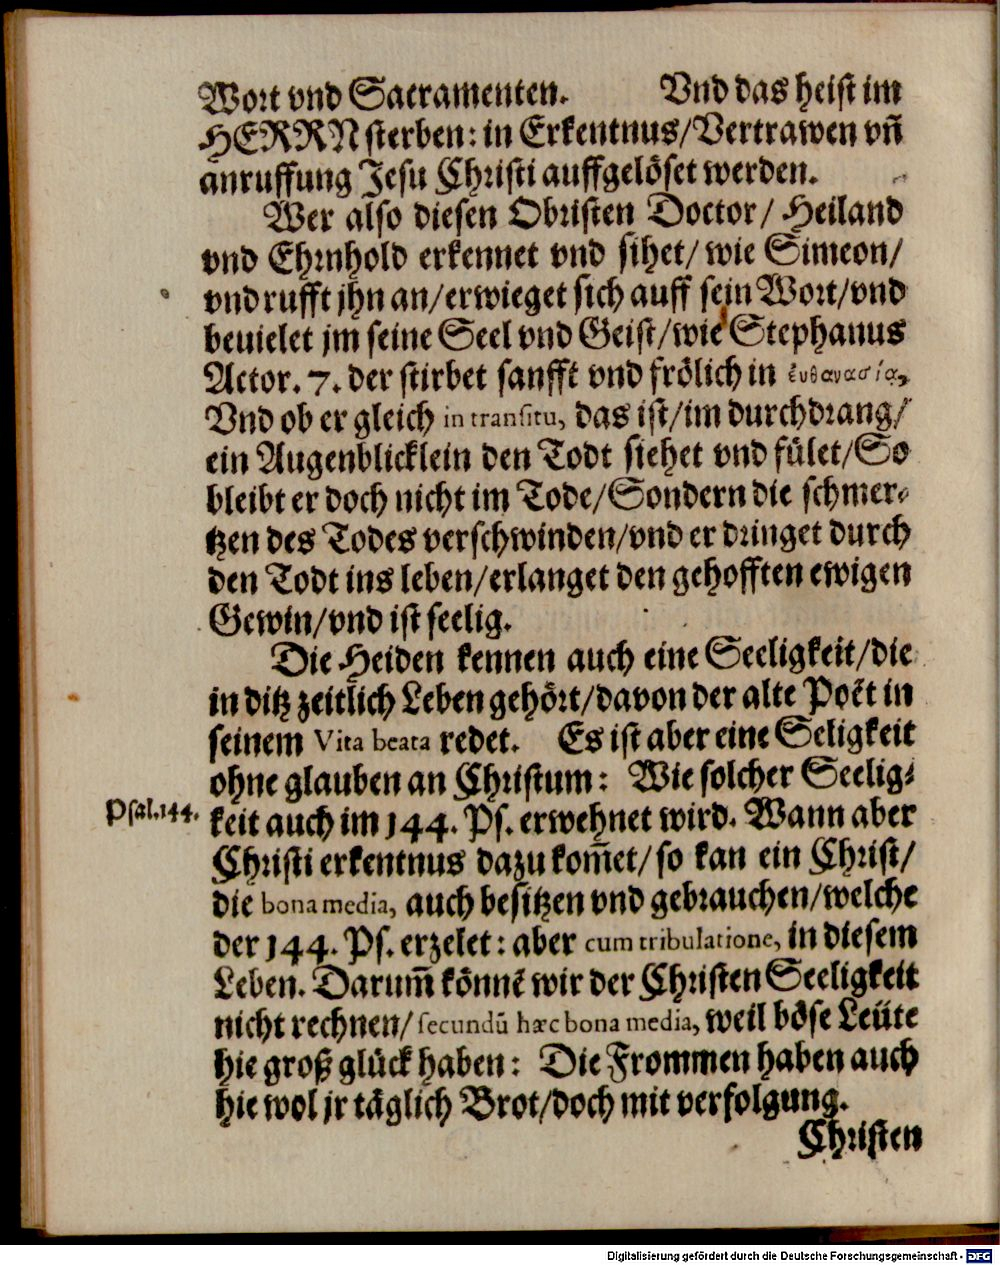 Wort vnd Sacramenten. Vnd das heist im
HERRN sterben: in Erkentnus/Vertrawen vñ
anruffung Jesu Christi auffgelöset werden.
Wer also diesen Obristen Doctor/ Heiland
vnd Ehrnhold erkennet vnd sihet/ wie Simeon/
vnd rufft jhn an/erwieget sich auff sein Wort/vnd
beuielet jm seine Seel vnd Geist/wie Stephanus
Actor. 7. der stirbet sanfft vnd frölich in ἐυθανασία,
Vnd ob er gleich in transitu, das ist/im durchdrang/
ein Augenblicklein den Todt siehet vnd fület/So
bleibt er doch nicht im Tode/Sondern die schmer-
tzen des Todes verschwinden/vnd er dringet durch
den Todt ins leben/erlanget den gehofften ewigen
Gewin/vnd ist seelig.
Die Heiden kennen auch eine Seeligkeit/die
in ditz zeitlich Leben gehört/davon der alte Poët in
seinem Vita beata redet. Es ist aber eine Seligkeit
ohne glauben an Christum: Wie solcher Seelig-
Psal.144.
keit auch im 144. Ps. erwehnet wird. Wann aber
Christi erkentnus dazu kom̃et/ so kan ein Christ/
die bona media, auch besitzen vnd gebrauchen/welche
der 144. Ps. erzelet: aber cum tribulatione, in diesem
Leben. Darum̃ könnẽ wir der Christen Seeligkeit
nicht rechnen/ secundũ hæc bona media, weil böse Leüte
hie groß glück haben: Die Frommen haben auch
hie wol jr täglich Brot/doch mit verfolgung.
Christen
Digitalisierung gefördert durch die Deutsche Forschungsgemeinschaft - DFG